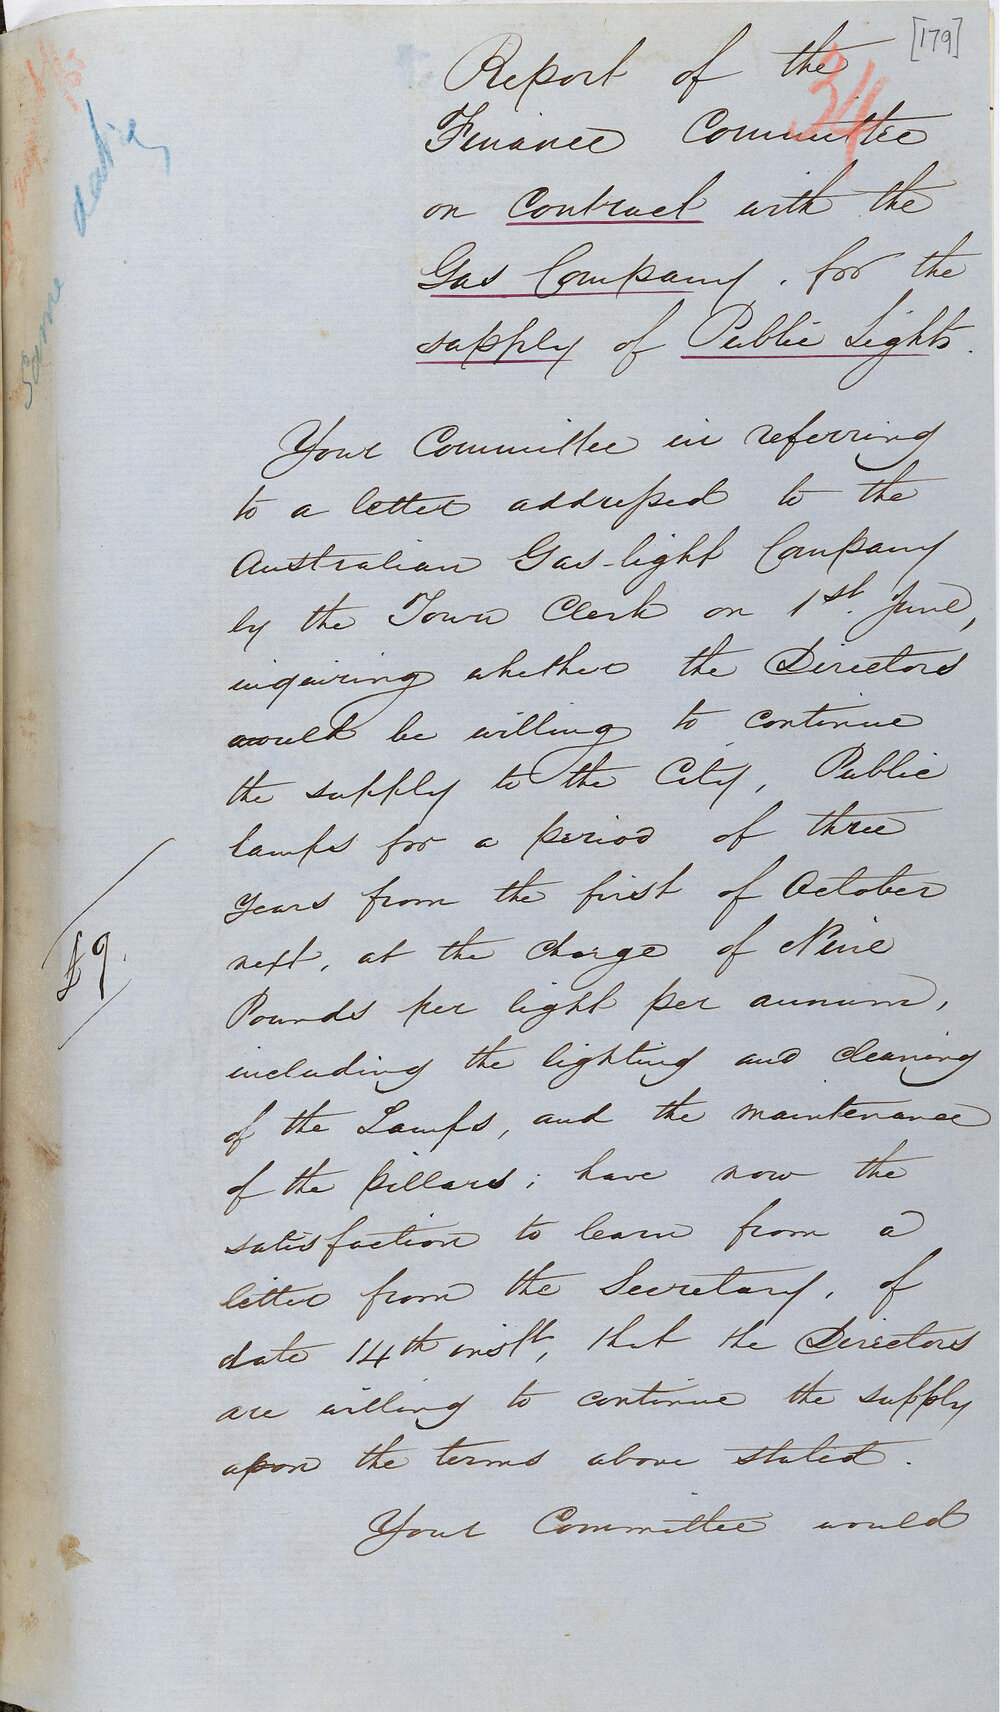 [179]
34
Report of the
Finance Committee
on Contract with the
Gas Company, for the
supply of Public Lights.
Your Committee in referring
to a letter addressed to the
Australian Gas-light Company
by the Town Clerk on 1st June,
inquiring whether the Directors
would be willing to continue
the supply to the City, Public
lamps for a period of three
years from the first of October
next, at the charge of Nine
£9.
Pounds per light per annum,
including the lighting and cleaning
of the Lamps, and the maintenance
of the pillars; have now the
satisfaction to learn from a
letter from the Secretary, of
date 14th inst, that the Directors
are willing to continue the supply
upon the terms above stated.
Your Committee would
Same date